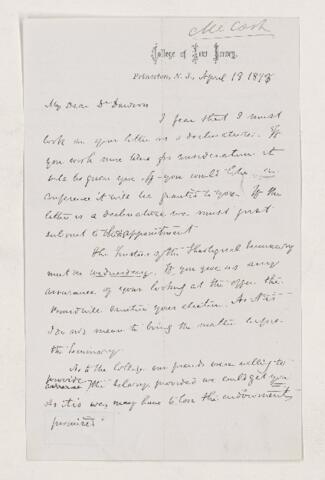 McCosh
College of New Jersey.
Princeton, N. J., April 19 187
My Dear Dr Dawson
I fear that I must
look on your letter as a declinature. If
you wish more time for consideration it
will be given you. If you would like a
conference it will be granted to you. If the
letter is a declinature we must just
submit to the disappointment
The Trustees of the Theological Seminary
meet on Wednesday. If you give us any
assurance of your looking at the offer the
will your election. As it is
I do not mean to bring the matter before
the Seminary.
As to the College our friends were willing to
provide
the salary provided we could get you
As it is we may have to lose the endowments
promised